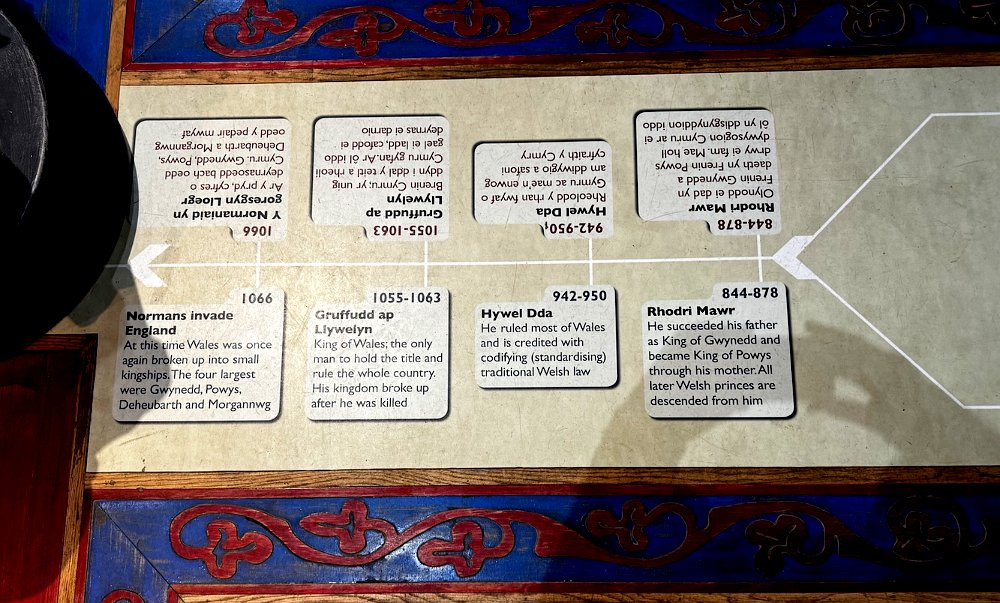 1066
Normans invade
England
At this time Wales was once
again broken up into small
kingships. The four largest
were Gwynedd, Powys,
Deheubarth and Morgannwg
1055-1063
Gruffudd ap
Llywelyn
King of Wales; the only
man to hold the title and
rule the whole country.
His kingdom broke up
after he was killed
942-950
Hywel Dda
He ruled most of Wales
and is credited with
codifying (standardising)
traditional Welsh law
844-878
Rhodri Mawr
He succeeded his father
as King of Gwynedd and
became King of Powys
through his mother. All
later Welsh princes are
descended from him
844-878
Rhodri Mawr
Olynodd ei dad yn
Frenin Gwynedd a
daeth yn Frenin Powys
drwy ei fam. Mae holl
dywysogion Cymru ar ei
ôl yn ddisgynyddion iddo
942-950
Hywel Dda
Rheolodd y rhan fwyaf o
Gymru ac mae'n enwog
am ddiwygio a safoni
cyfraith y Cymry
1055-1063
Gruffudd ap
Llywelyn
Brenin Cymru; yr unig
ddyn i ddal y teitl a rheoli
Cymru gyfan. Ar ôl iddo
gael ei ladd, cafodd ei
deyrnas ei darnio
1066
Y Normaniaid yn
goresgyn Lloegr
Ar y pryd, cyfres o
deyrnasoedd bach oedd
Cymru. Gwynedd, Powys,
Deheubarth a Morgannwg
oedd y pedair mwyaf